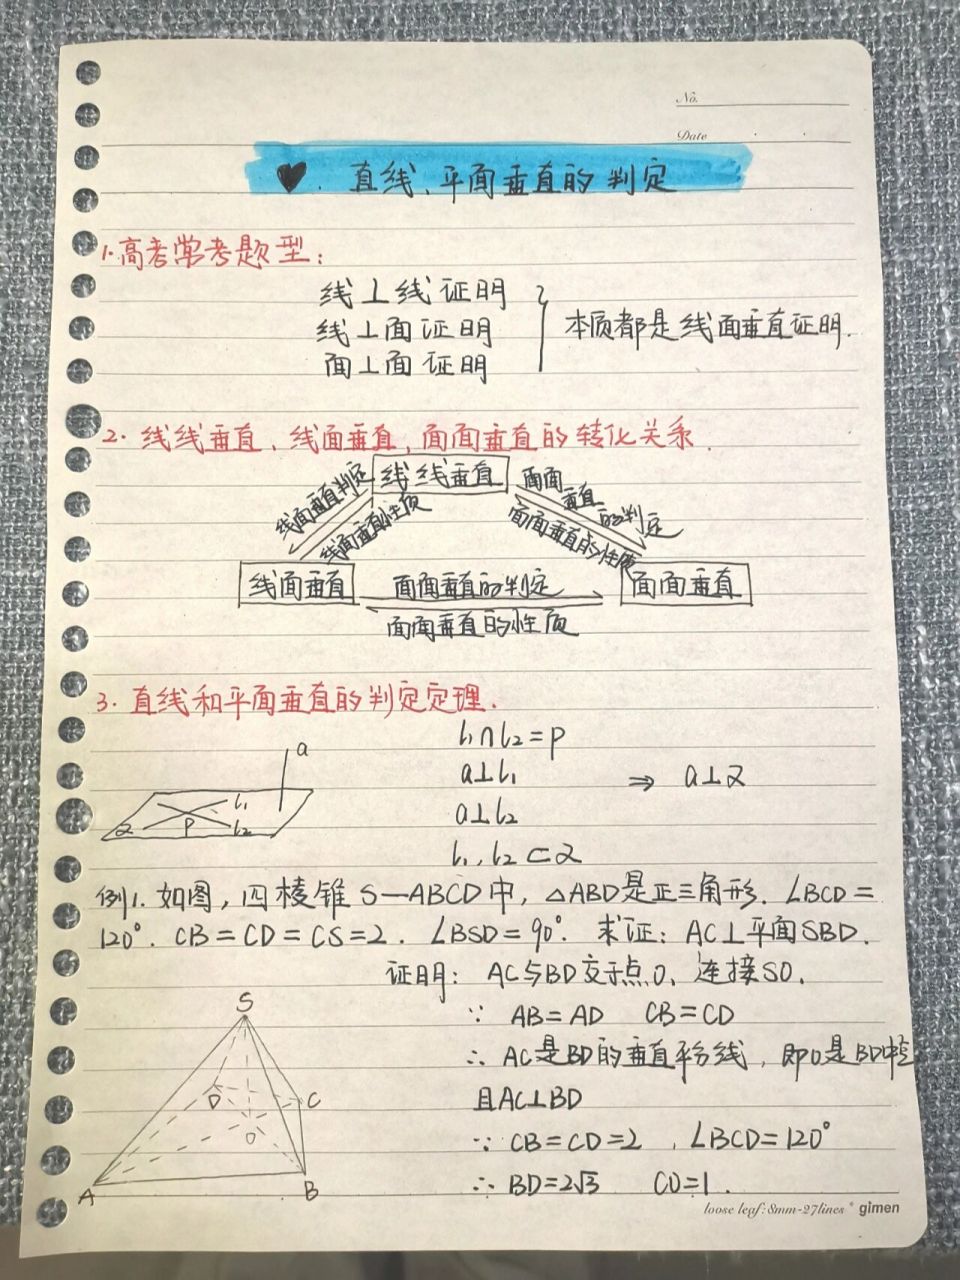 No.
Date
♥. 直线、平面垂直的判定
1.高考常考题型:
线⊥线证明
线⊥面证明
面⊥面证明
本质都是线面垂直证明.
2. 线线垂直、线面垂直,面面垂直的转化关系.
线线垂直
线面垂直判定
线面垂直性质
面面
垂直
的判定
面面垂直的性质
线面垂直
面面垂直的判定
面面垂直的性质
面面垂直
3. 直线和平面垂直的判定定理.
a
l₁
l₂
P
α
l₁∩l₂=P
a⊥l₁
a⊥l₂
l₁,l₂⊂α
⇒ a⊥α
例1. 如图,四棱锥S—ABCD中,△ABD是正三角形.∠BCD=
120°. CB=CD=CS=2. ∠BSD=90°. 求证: AC⊥平面SBD.
证明: AC与BD交于点O, 连接SO.
∵ AB=AD CB=CD
∴ AC是BD的垂直平分线,即O是BD中点
且AC⊥BD
∵ CB=CD=2 ,∠BCD=120°
∴ BD=2√3 CO=1.
S
D
C
O
A
B
loose leaf:8mm-27lines * gimen